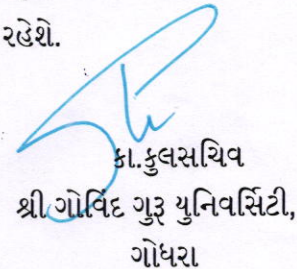 રહેશે.
કા.કુલસચિવ
શ્રી ગોવિંદ ગુરૂ યુનિવર્સિટી,
ગોધરા